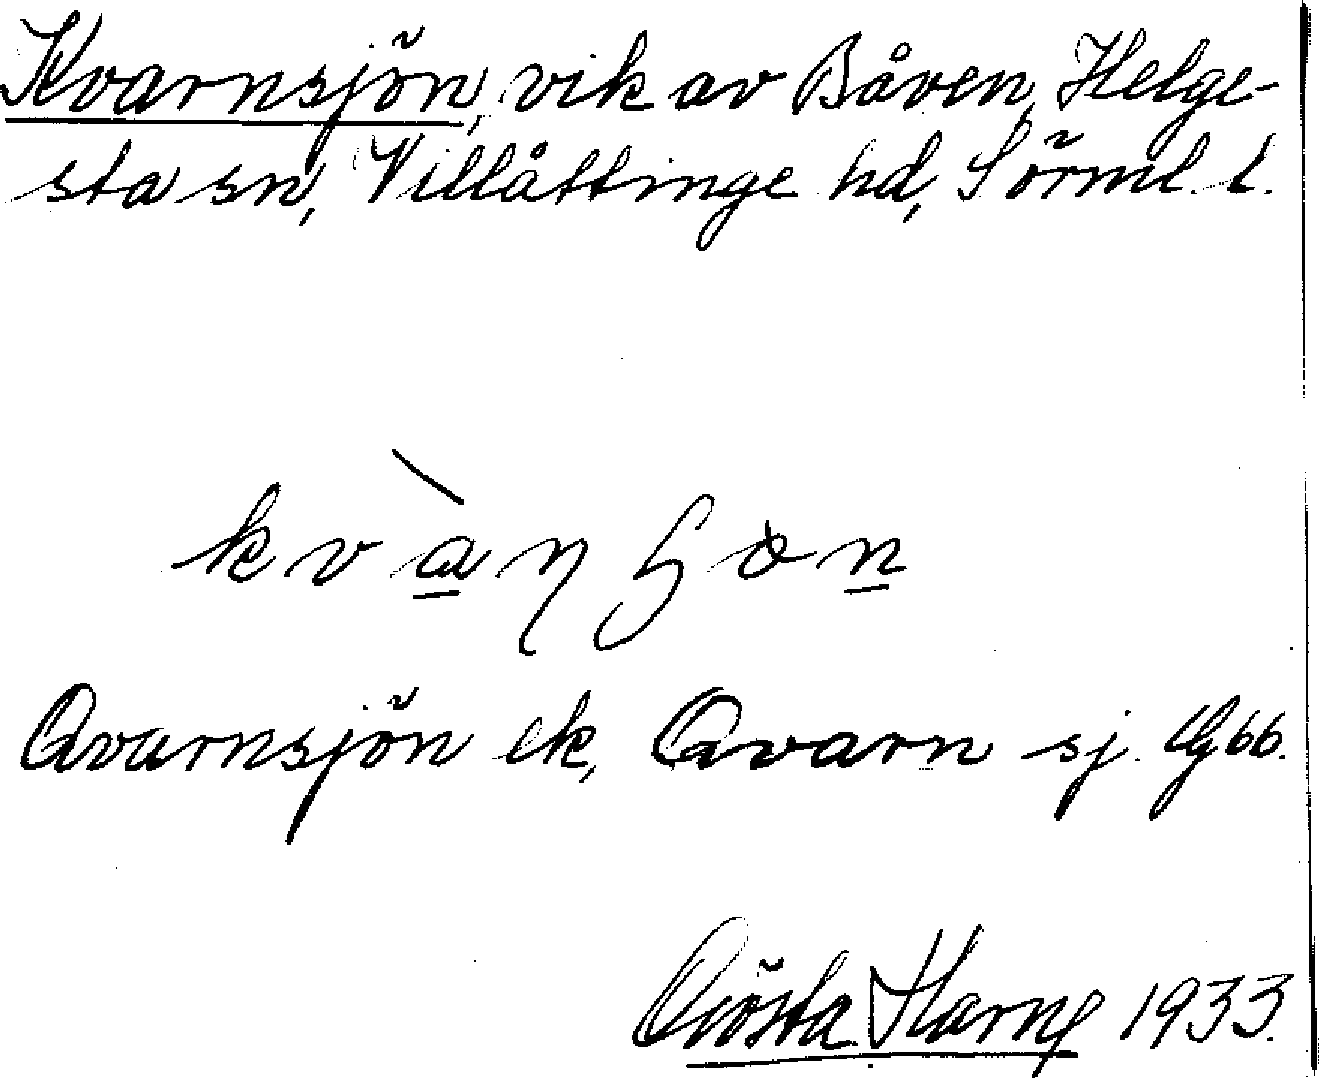 Kvarnsjön, vik av Båven, Helge-
sta sn, Villåttinge hd, Sörml. l.
Qvarnsjön ek, Qvarn sj. Gg 66.
Gösta Harng 1933.